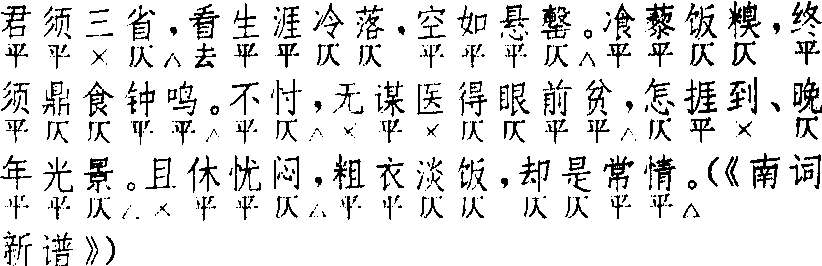 君须三省，看生涯冷落，空如悬罄。飡藜饭糗，终
平平×仄△去平平仄仄 平平平仄△平平仄仄 平
须鼎食钟鸣。不忖，无谋医得眼前贫，怎捱到、晚
平仄仄平平△平仄△×平×仄仄平平△仄平× 仄
年光景。且休忧闷，粗衣淡饭，却是常情。(《南词
平平仄△×平平仄△平平仄仄 仄仄平平△
新谱》)